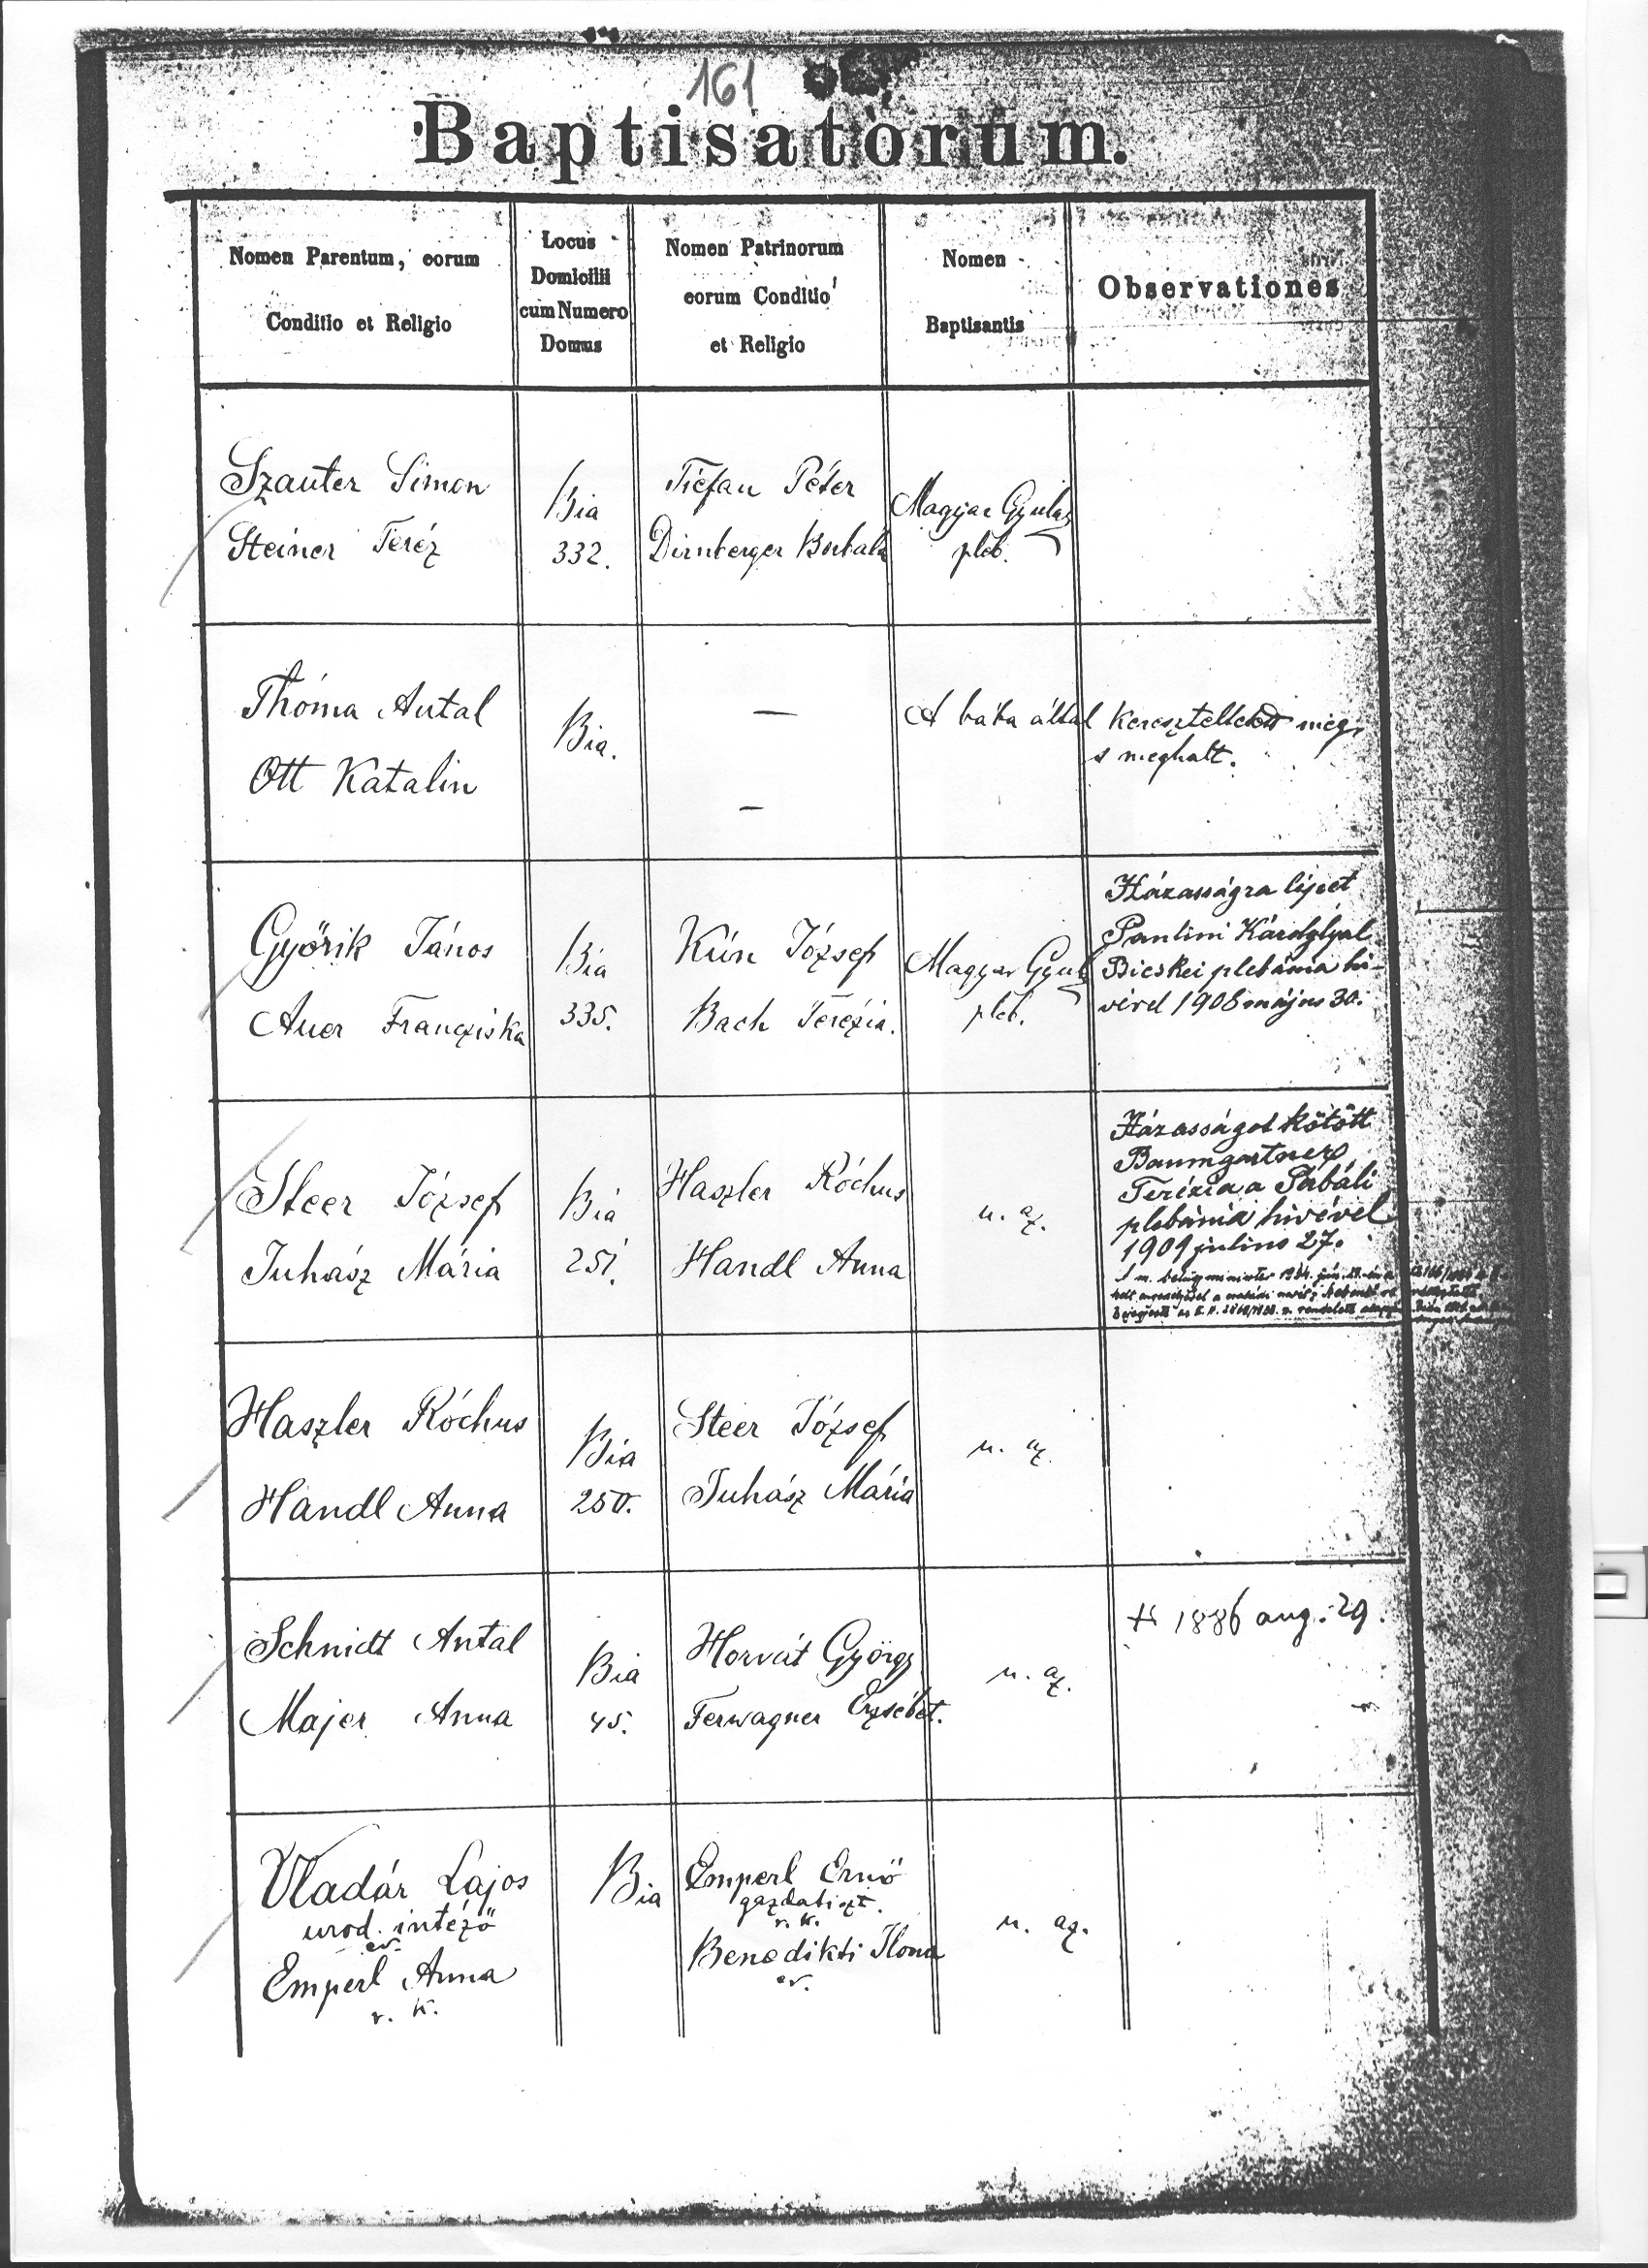 161
Baptisatorum.
Nomen Parentum, eorum
Conditio et Religio
Locus
Domicilii
cum Numero
Domus
Nomen Patrinorum
eorum Conditio
et Religio
Nomen
Baptisantis
Observationes
Szauter Simon
Steiner Teréz
Bia
332.
Tiefau Péter
Dirnberger Borbála
Magyar Gyula
pleb.
Thóma Antal
Ott Katalin
Bia.
—
—
A bába által kereszteltetett meg,
s meghalt.
Györik János
Auer Francziska
Bia
335.
Kún József
Bach Terézia.
Magyar Gyula
pleb.
Házasságra lépet
Pantini Károlylyal
Bicskei plebánia hi-
vével 1908 május 30.
Steer József
Juhász Mária
Bia
251.
Haszler Róchus
Handl Anna
u. az.
Házasságot kötött
Baumgartner
Terézia a Torbáli
plebánia hivével
1909 julius 27.
Haszler Róchus
Handl Anna
Bia
250.
Steer József
Juhász Mária
u. az.
Schnidt Antal
Majer Anna
Bia
45.
Horvát György
Ferwagner Erzsébet.
u. az.
1886 aug. 29.
Vladár Lajos
urod. intéző
ev.
Emperl Anna
r. k.
Bia
Emperl Ernő
gazdatiszt.
r. k.
Benedikti Ilona
ev.
u. az.